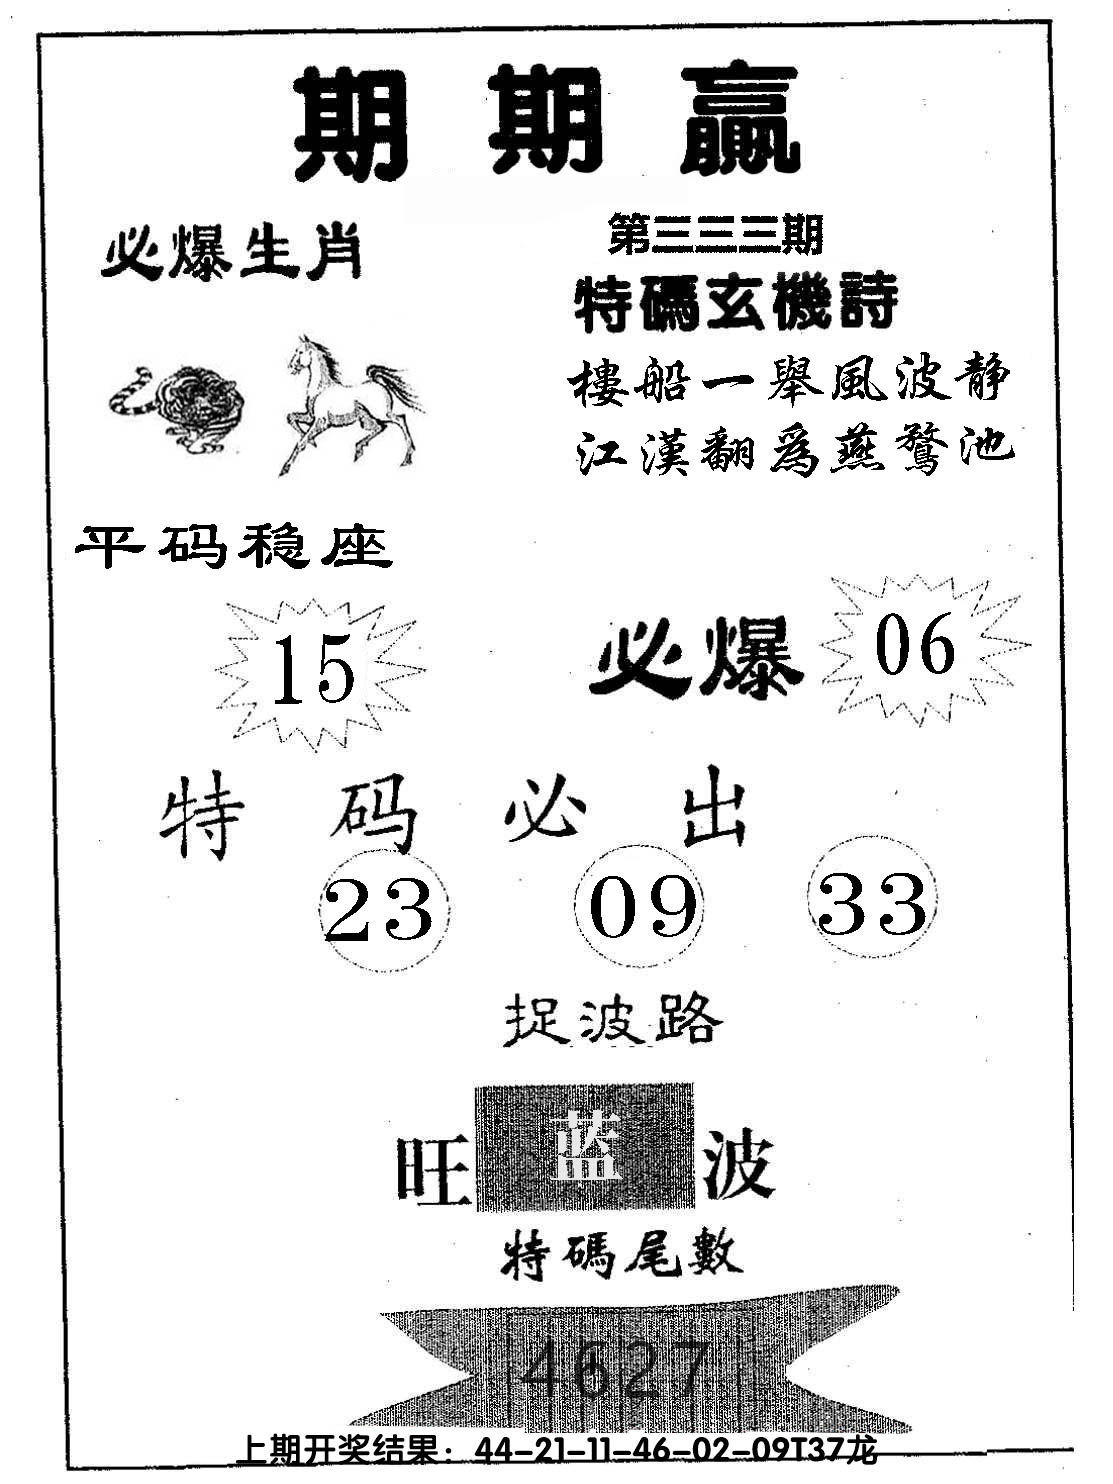 期期赢
必爆生肖
第三三三期
特碼玄機詩
樓船一舉風波静
江漢翻爲燕鶩池
平码稳座
15
必爆 06
特码必出
23 09 33
捉波路
旺蓝波
特碼尾數
4627
上期开奖结果：44-21-11-46-02-09T37龙